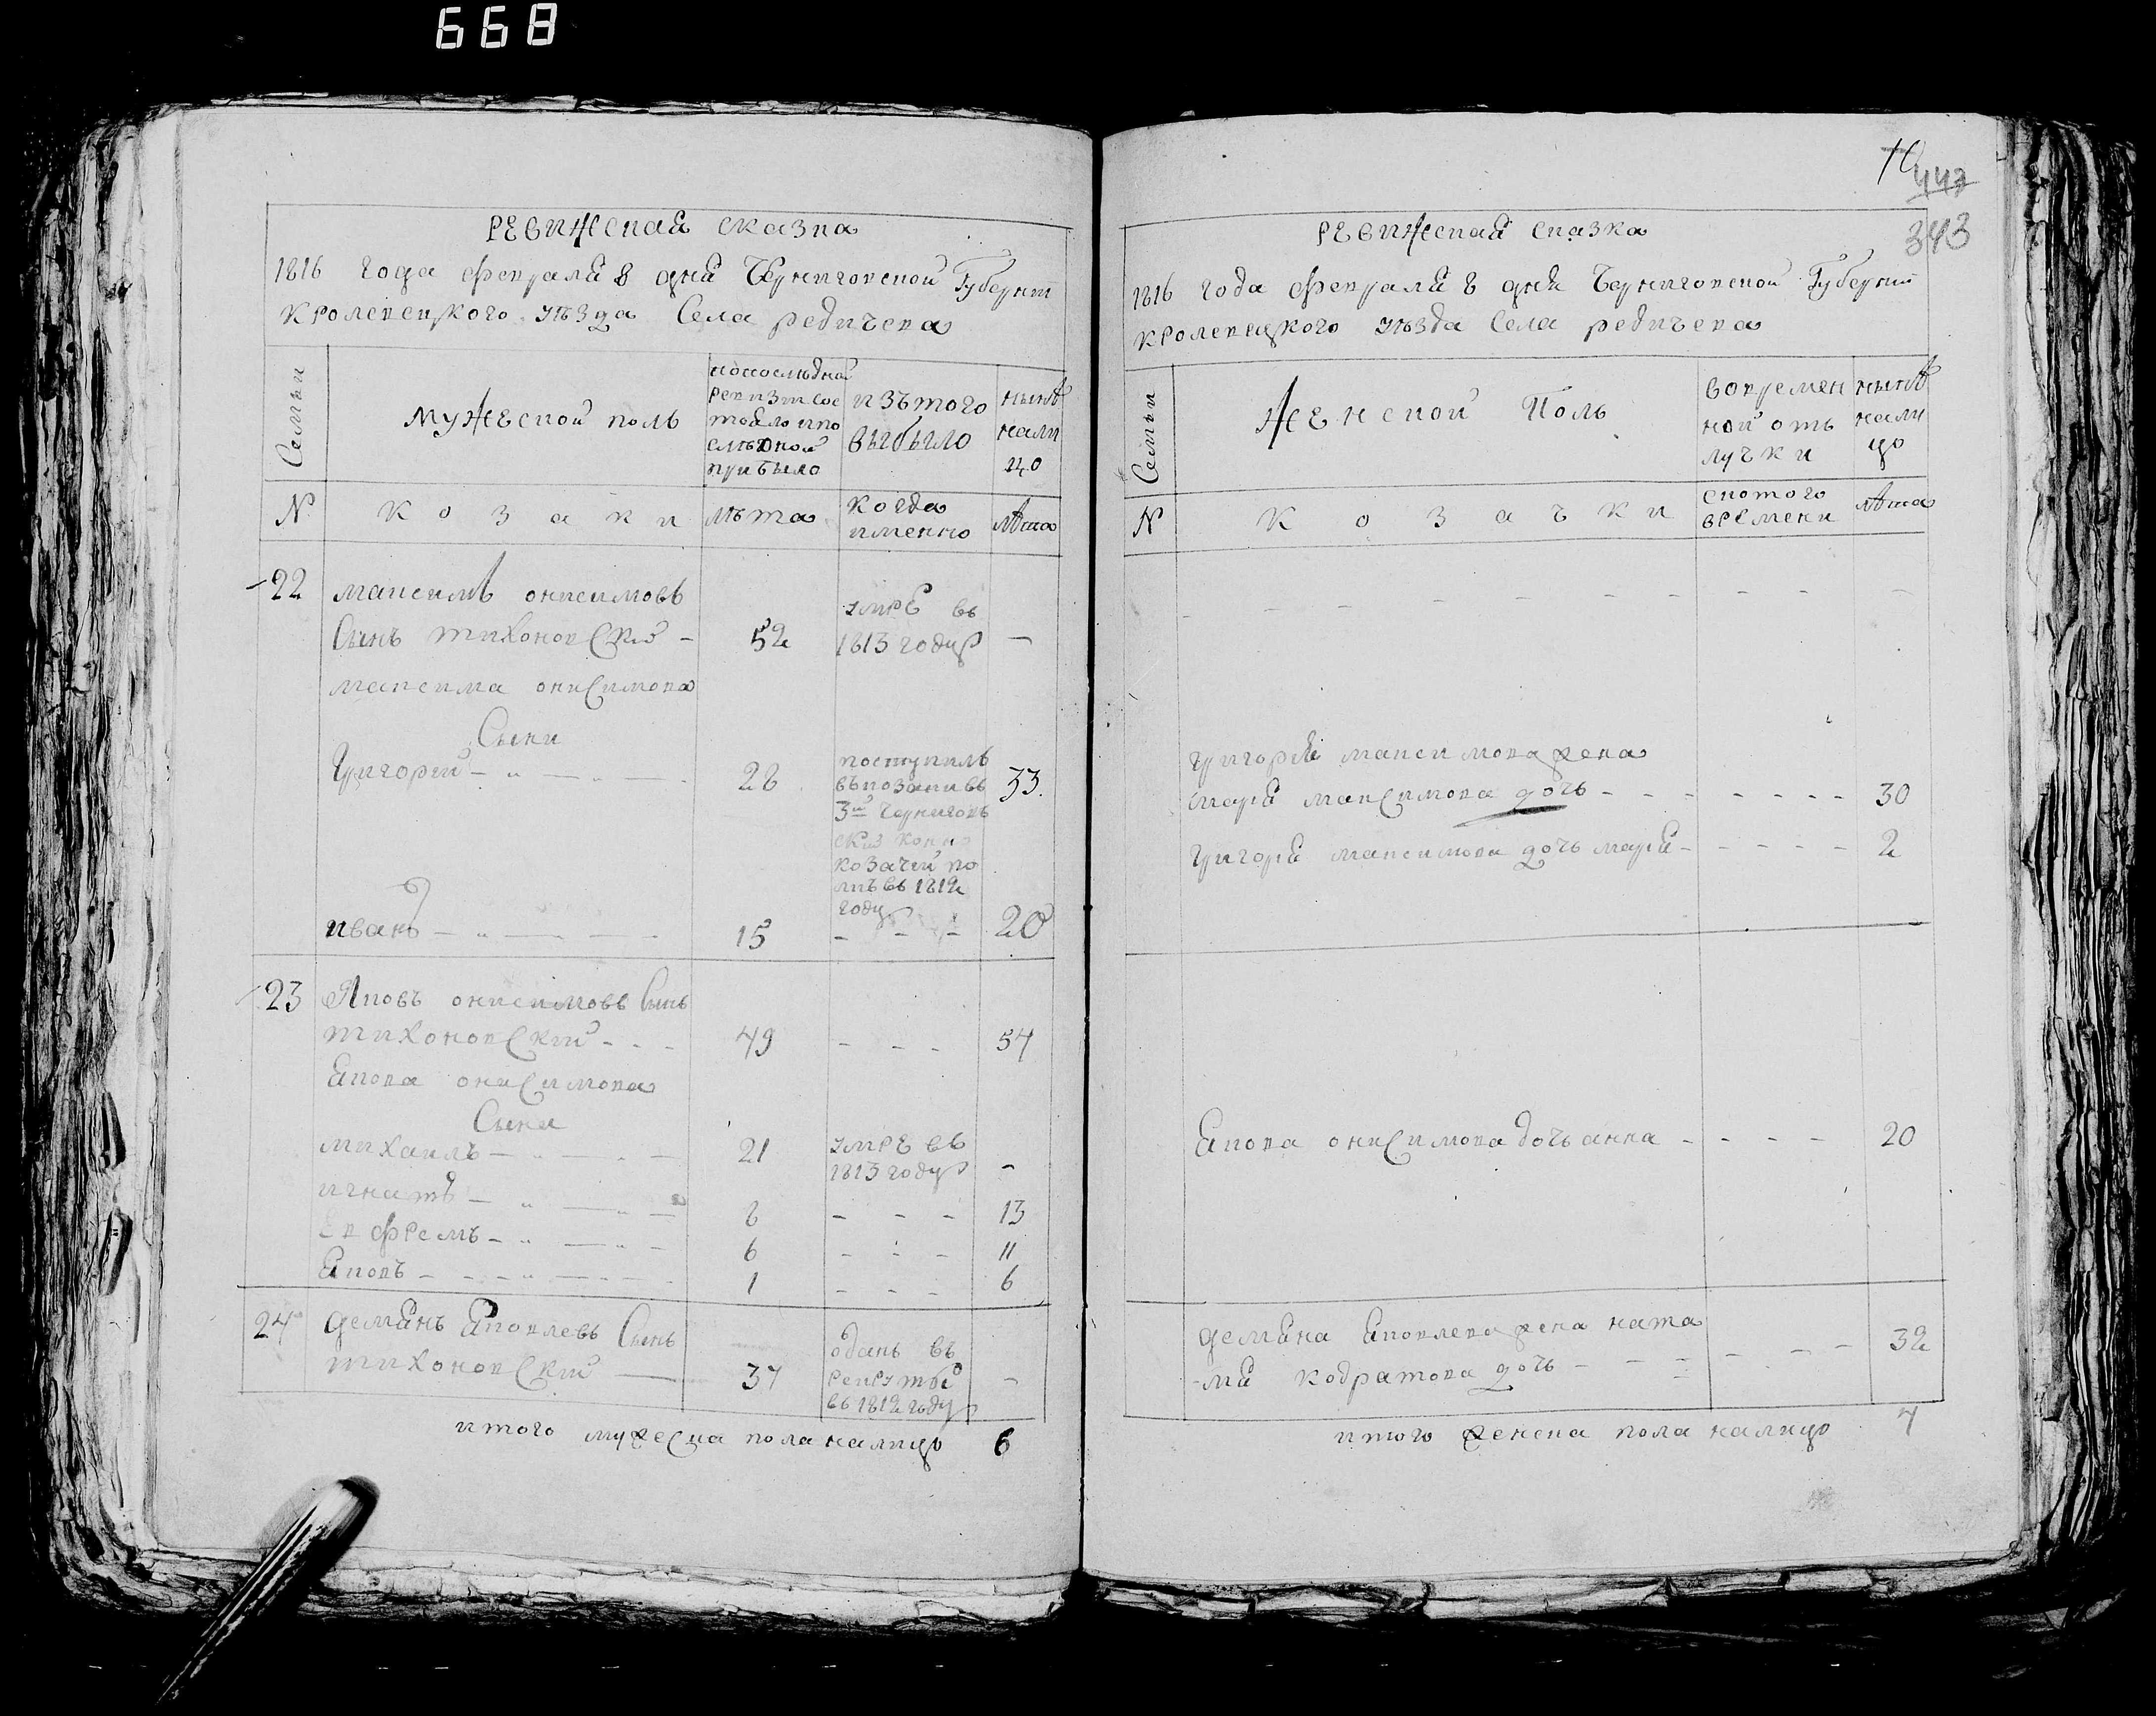 668
10
447
343
Ревижская сказка
1816 года февраля 8 дня Черниговской Губернии
кролевецкого уезда Села редичева
Семьи
мужеской полъ
попоследней
ревизии сос
тояло и по
следной
прибыло
изътого
выбыло
ныне
нали
цо
N
козаки
лета
когда
именно
лета
22
максимъ онисимовъ
Сынъ тихоновский -
52
умре въ
1813 году
—
максима онисимова
Сыни
григорей
28
поступилъ
въ козаки въ
3й чернигов
ский конно
козачий по
лкъ въ 1812
году
33
иванъ
15
20
23
Яковъ онисимовъ Сынъ
тихоновский - - -
49
- - -
54
Якова онисимова
Сыни
михаилъ
21
умре въ
1813 году
-
игнатъ
8
- - -
13
Ефремъ
6
- - -
11
Яковъ
1
- - -
6
24
демянъ Яковлевъ Сынъ
тихоновский
37
одань въ
рекруты
въ 1812 году
-
итого мужеска пола налицо 6
Ревижская сказка
1816 года февраля 8 дня Черниговской Губернии
кролевецкого уезда Села редичева
Семьи
Женской Полъ
вовремен
ной отъ
лучки
ныне
нали
цо
N
козачки
скотого
времени
лета
григорія максимова жена
марія максимова дочь - - - - - - -
30
григорія максимова дочь марія - - - - -
2
Якова онисимова дочь анна - - - -
20
демяна Яковлева жена ната
-лия кодратова дочь - - -
32
итого женска пола налицо 4